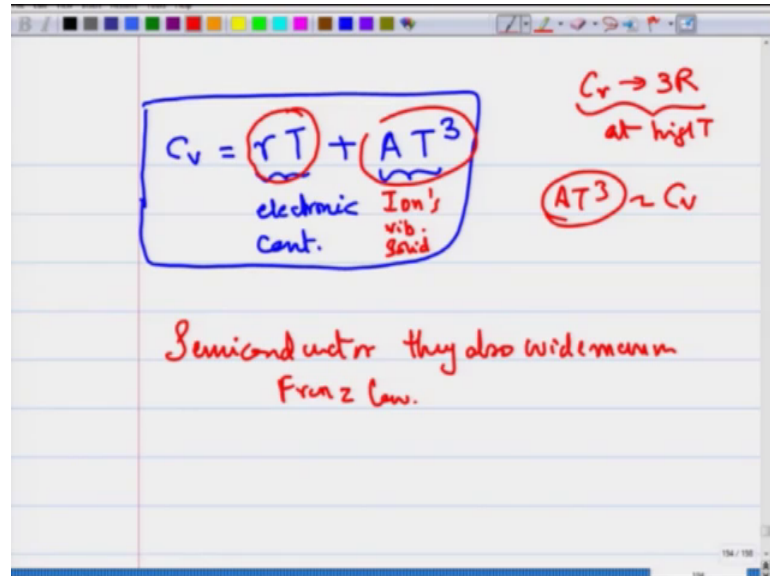 Cv = γT + AT³
electronic Ion's
Cont. vib.
solid
Cv → 3R
at high T
AT³ ~ Cv
Semiconductor they also widemann
Franz law.
154 / 158